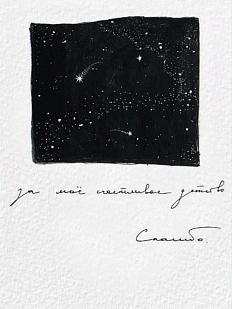 за моё счастливое детство
Спасибо.